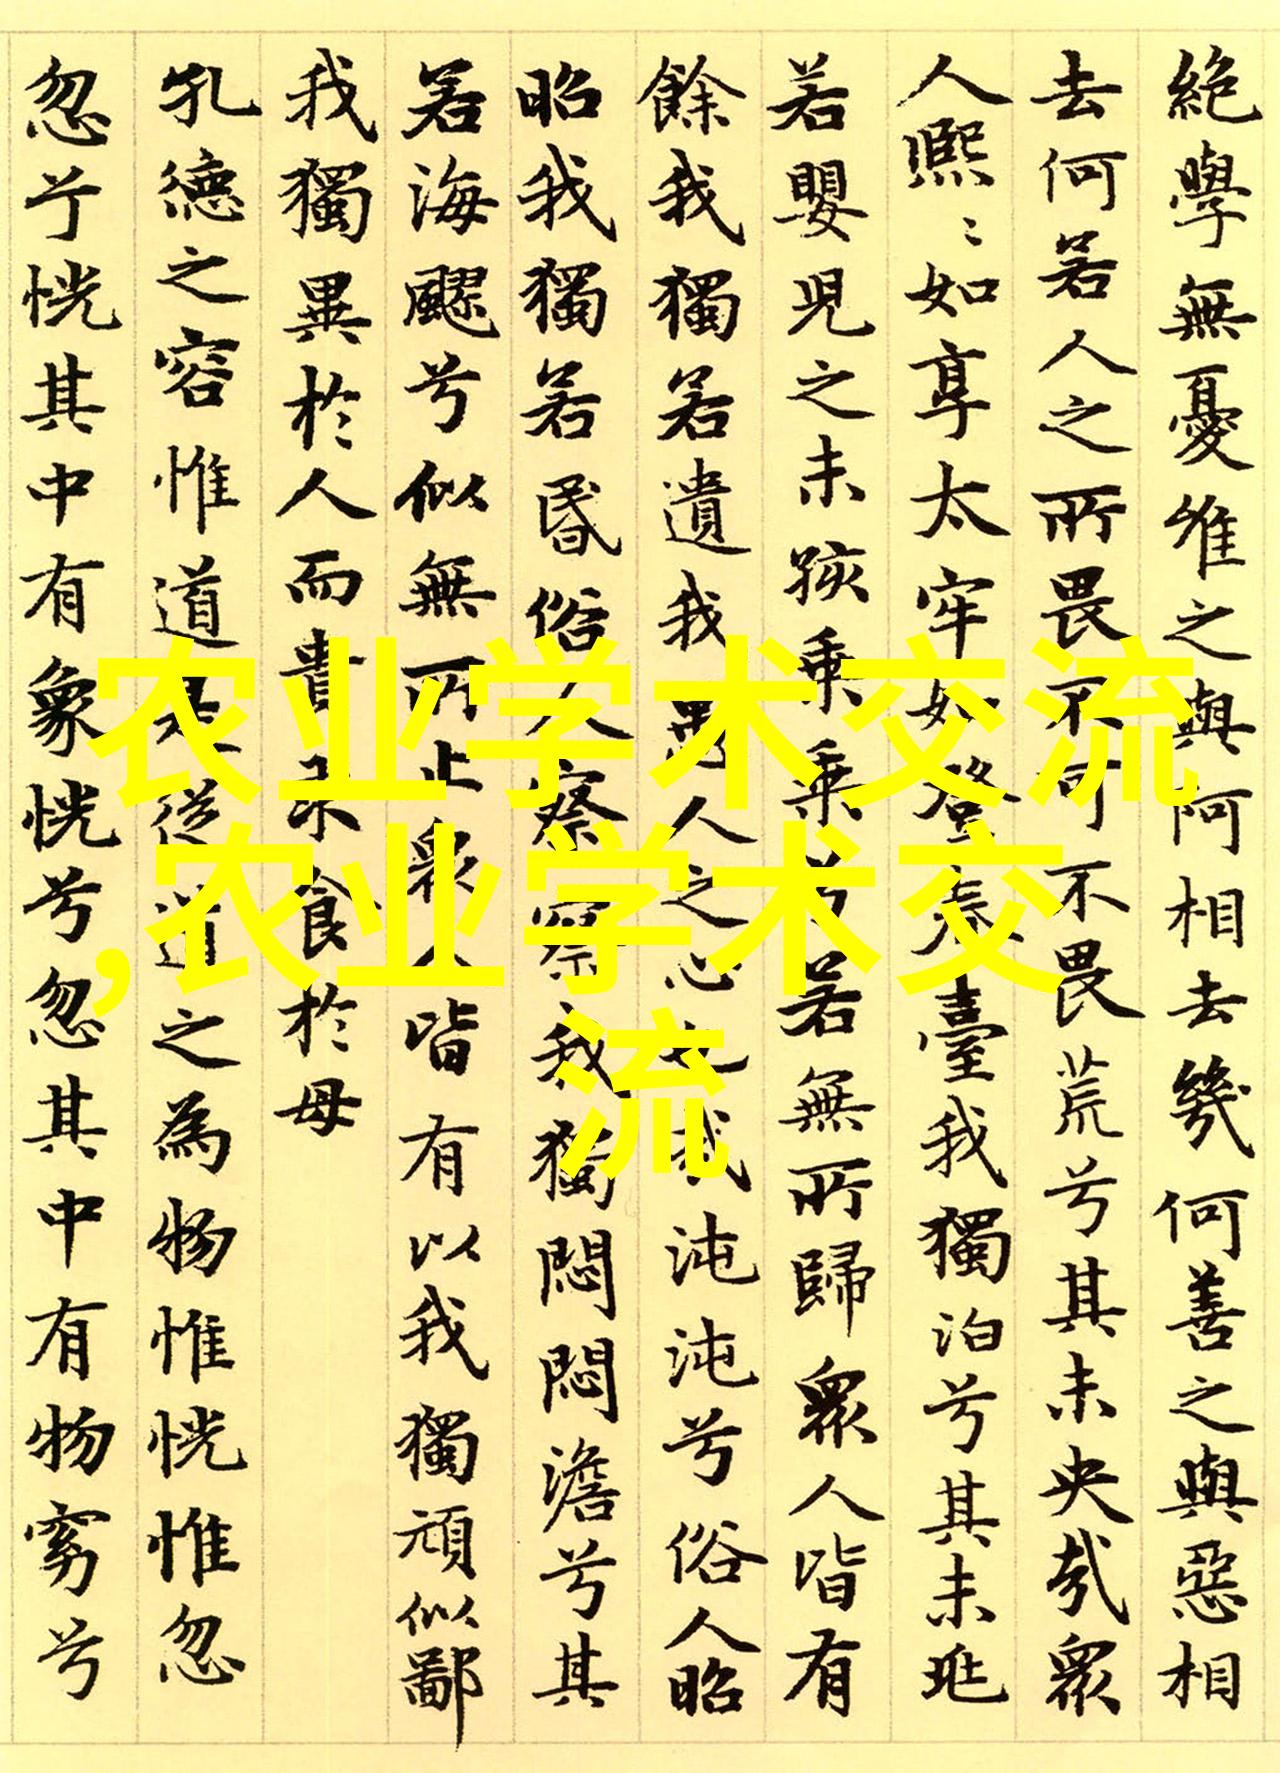 絕學無憂唯之與阿相去幾何善之與惡相
去何若人之所畏不可不畏荒兮其未央哉眾
人熙〻如享太牢如登春臺我獨泊兮其未兆
若嬰兒之未孩乘乘兮若無所歸眾人皆有
餘我獨若遺我愚人之心也哉沌沌兮俗人昭
昭我獨若昏俗人察察我獨悶悶澹兮其
若海飂兮似無所止眾人皆有以我獨頑似鄙
我獨異於人而貴求食於母
孔德之容惟道是從道之為物惟恍惟忽
忽兮恍其中有象恍兮忽其中有物窈兮
农业学术交流
,农业学术交
流